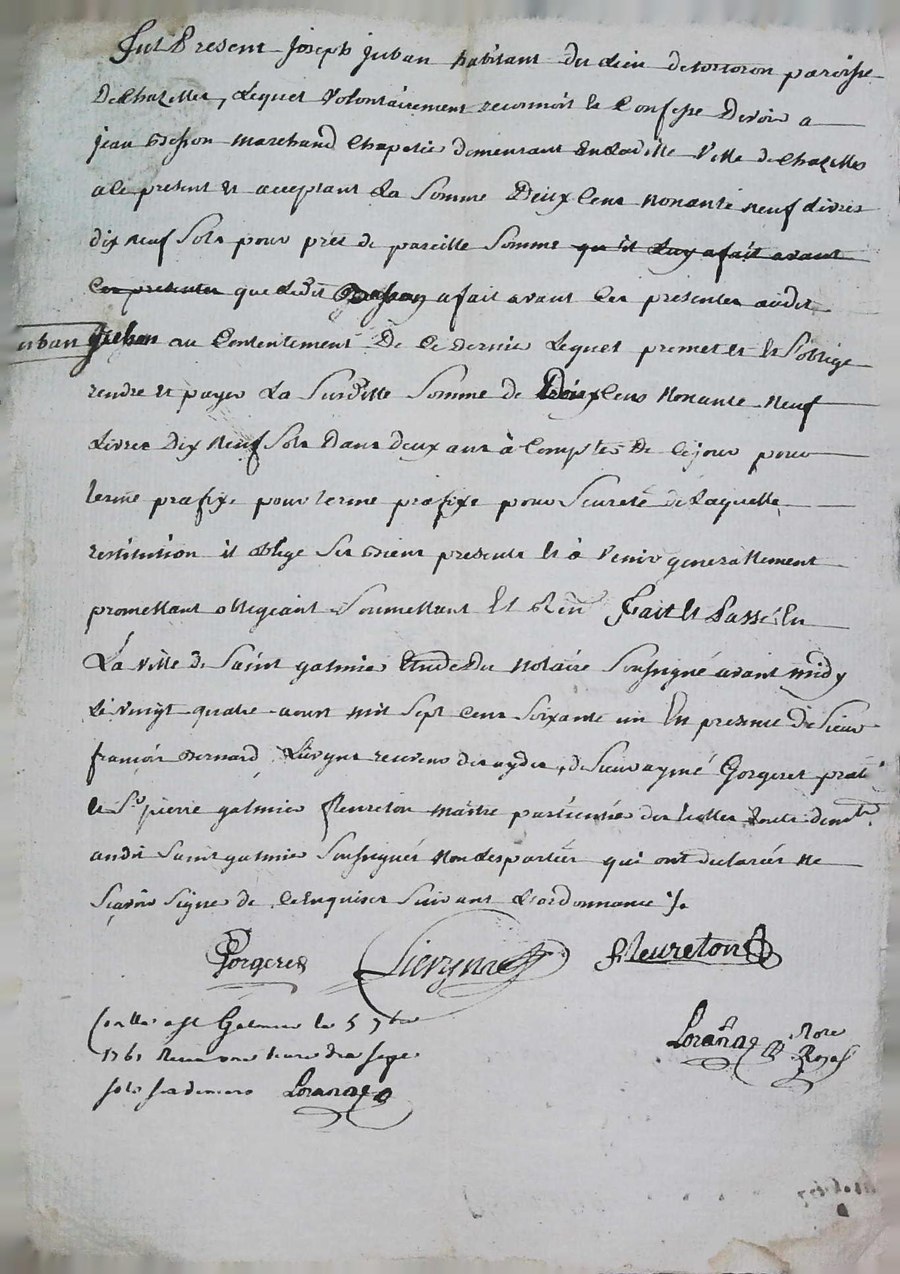 Fut Present Joseph juban habitant du lieu de paroisse
De Chazelles, Lequel Volontairement reconnoit et Confesse Devoir a
jean Besson marchand Chapelie demeurant En Laditte Ville de Chazelles
a ce present et acceptant La Somme Deux Cens Nonante neuf Livres
dix neuf Sols pour pret de pareille Somme qu'il Luy a fait avant
Ces presentes que Ledit Besson a fait avant Ces presentes audit
juban au Contentement De Ce Dernier Lequel promet et et S'oblige
rendre et payer La Susditte Somme de Deux Cens Nonante Neuf
Livres Dix Neuf Sols Dans Deux ans à Comptes De Ce jour pour
terme prafixe pour terme prafixe pour Seureté de Laquelle
restitution il oblige Ses Biens presents et à Venir generallement
promettant obligeant Soumettant Et Rén Fait et Passé En
La Ville de Saint galmier Etude du Notaire Soussigné avant midy
Le Vingt quatre aoust mil Sept Cens Soixante un En presence de Sieur
françois Bernard Lievyne receveur des aydes, de Sieur aymé Gorgeret prat
et Sr pierre galmier fleureton maitre particulié des petites demts
audit Saint galmier Soussignés Non des parties qui ont declarées ne
Sçavoir Signer de Ce Enquises Suivant L'ordonnance ./.
Gorgeret Lievyne fleureton
Conlle a St Galmier le 5 7bre
1761 Recu une livre dix sept
sols six deniers Lorange
Lorange Nore
Royal